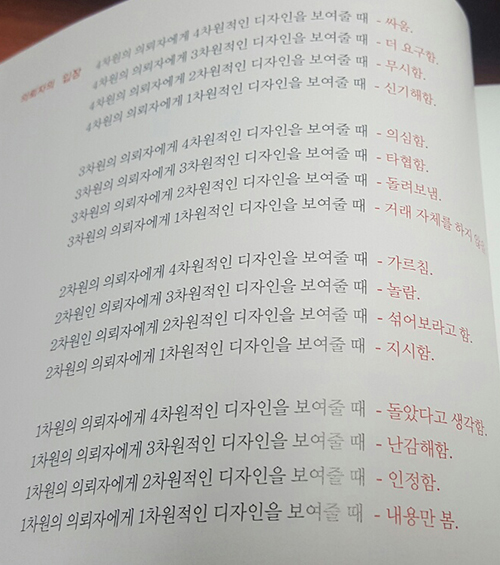 의뢰자의 입장
4차원의 의뢰자에게 4차원적인 디자인을 보여줄 때 - 싸움.
4차원의 의뢰자에게 3차원적인 디자인을 보여줄 때 - 더 요구함.
4차원의 의뢰자에게 2차원적인 디자인을 보여줄 때 - 무시함.
4차원의 의뢰자에게 1차원적인 디자인을 보여줄 때 - 신기해함.
3차원의 의뢰자에게 4차원적인 디자인을 보여줄 때 - 의심함.
3차원의 의뢰자에게 3차원적인 디자인을 보여줄 때 - 타협함.
3차원의 의뢰자에게 2차원적인 디자인을 보여줄 때 - 돌려보냄.
3차원의 의뢰자에게 1차원적인 디자인을 보여줄 때 - 거래 자체를 하지
2차원의 의뢰자에게 4차원적인 디자인을 보여줄 때 - 가르침.
2차원인 의뢰자에게 3차원적인 디자인을 보여줄 때 - 놀람.
2차원인 의뢰자에게 2차원적인 디자인을 보여줄 때 - 섞어보라고 함.
2차원의 의뢰자에게 1차원적인 디자인을 보여줄 때 - 지시함.
1차원의 의뢰자에게 4차원적인 디자인을 보여줄 때 - 돌았다고 생각함.
1차원의 의뢰자에게 3차원적인 디자인을 보여줄 때 - 난감해함.
1차원의 의뢰자에게 2차원적인 디자인을 보여줄 때 - 인정함.
1차원의 의뢰자에게 1차원적인 디자인을 보여줄 때 - 내용만 봄.